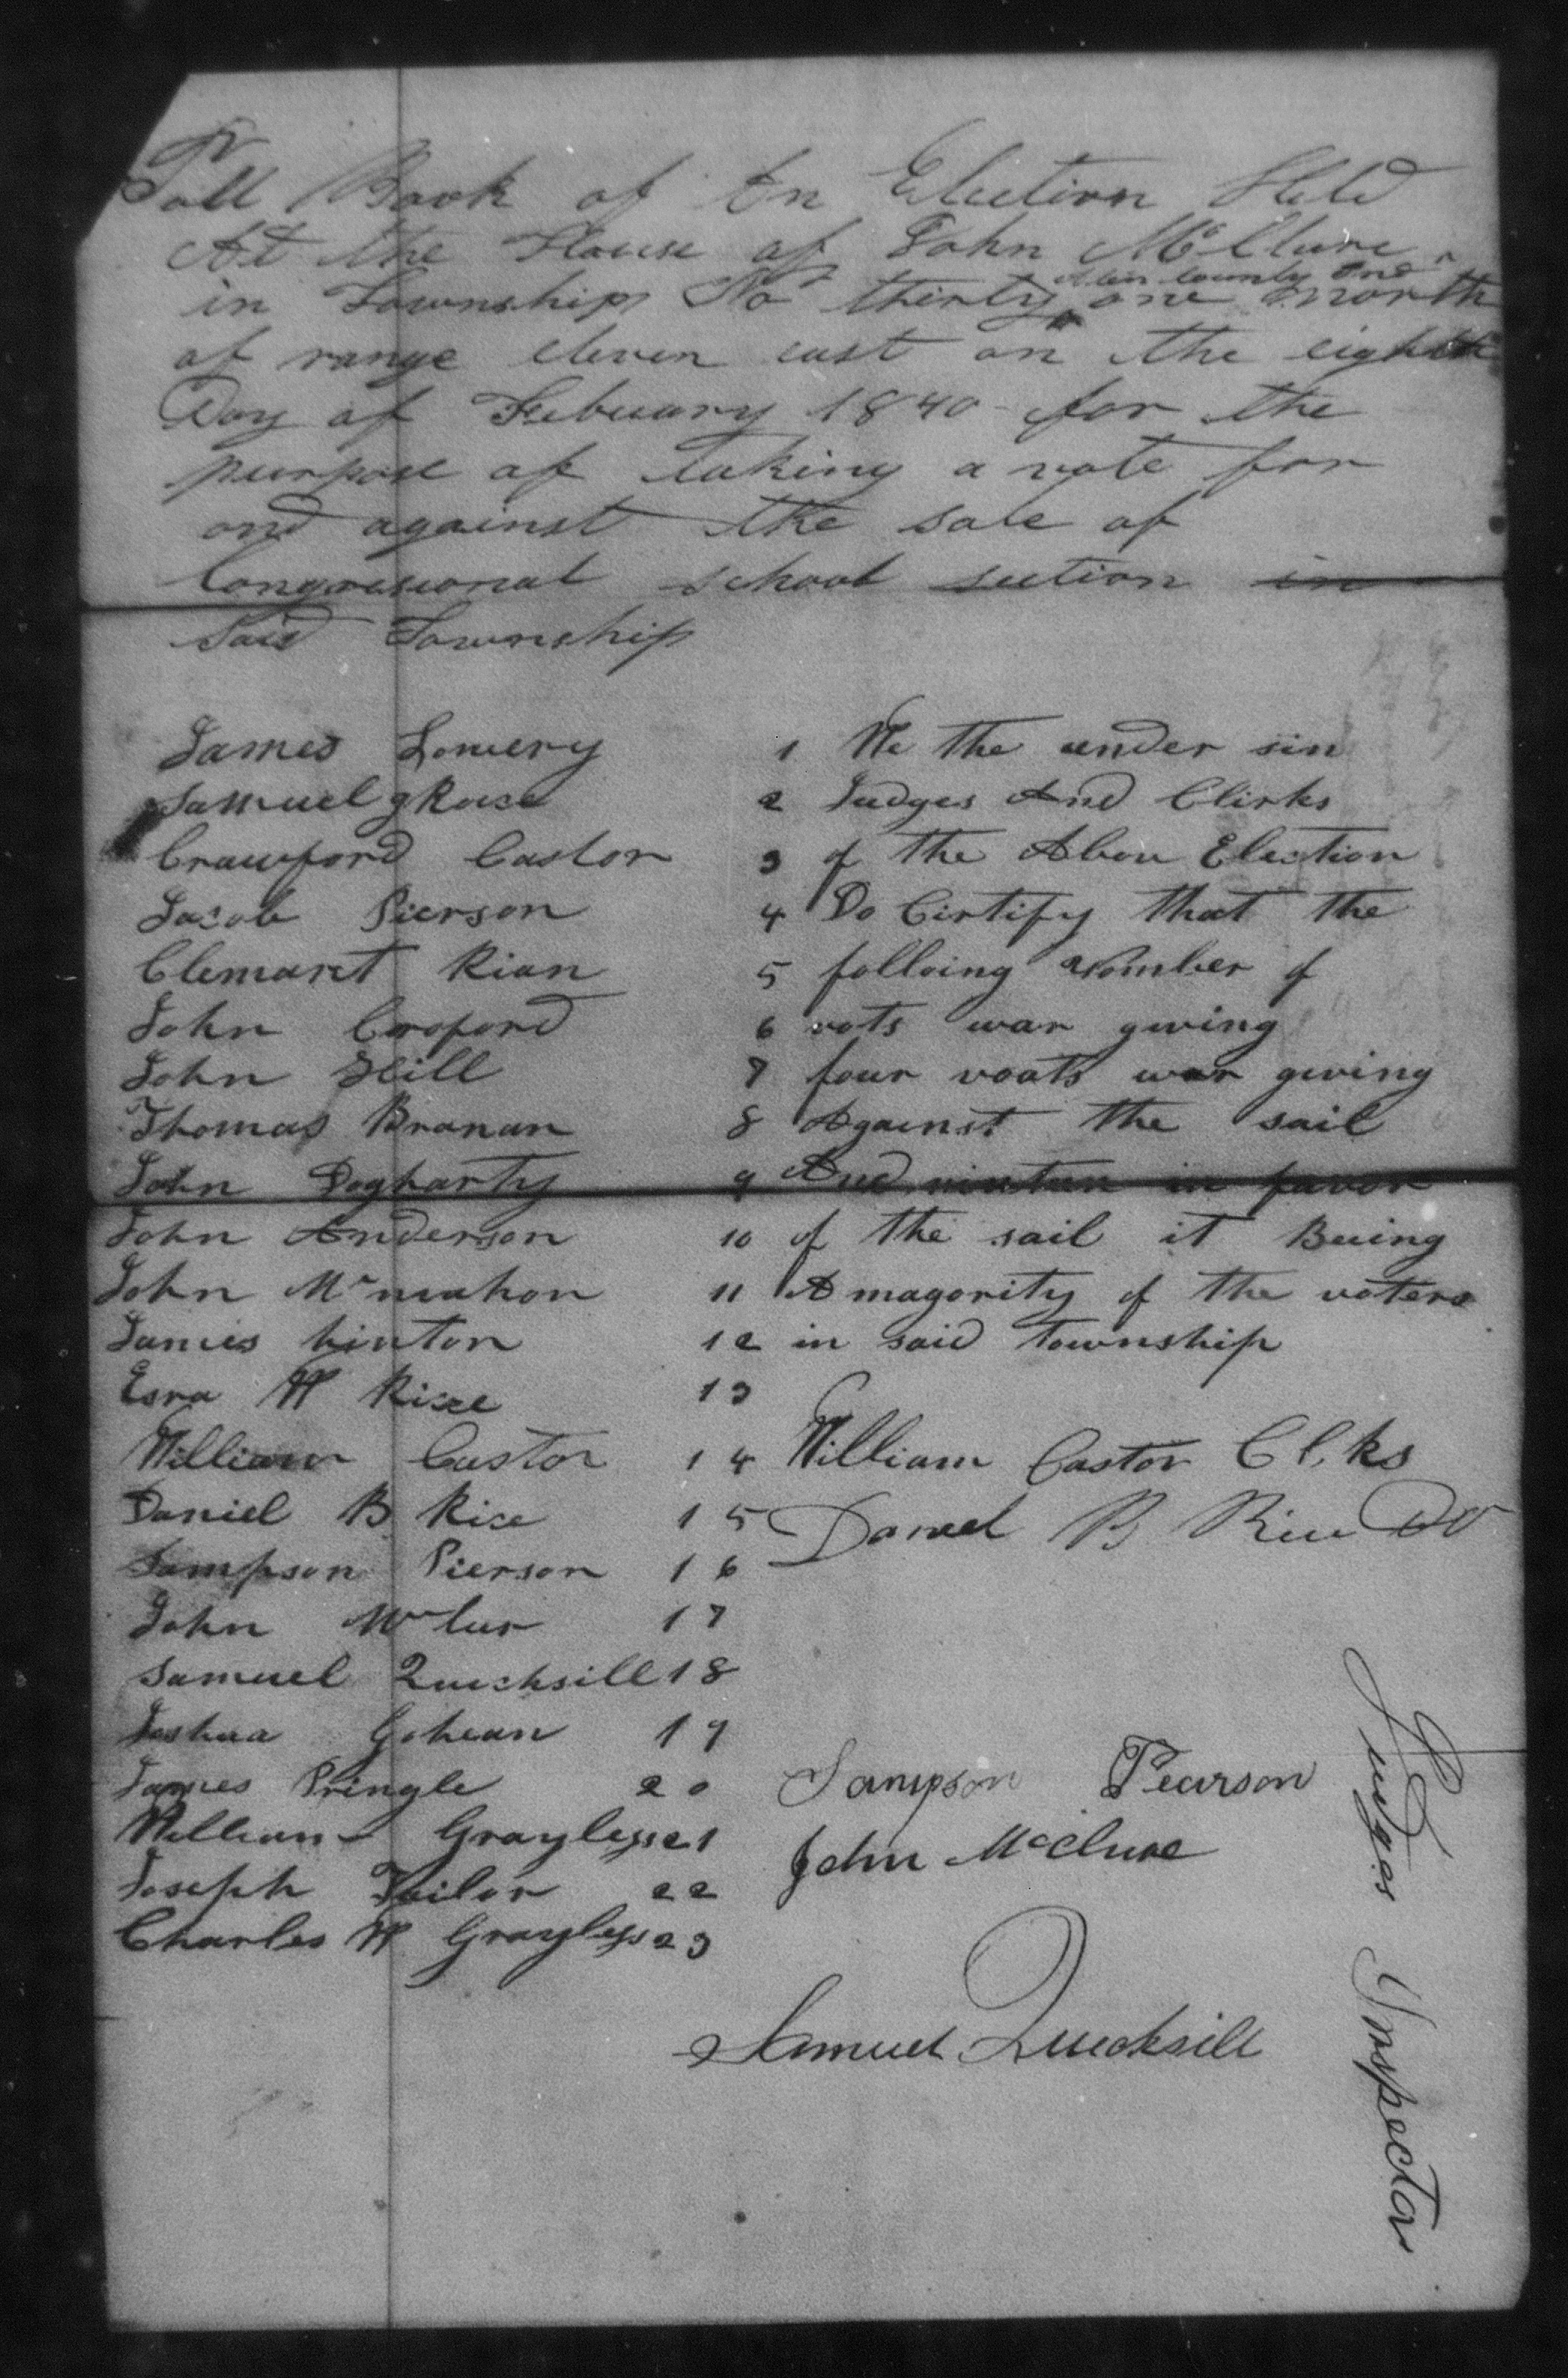 Poll Book of An Election Held
At the House of John McClure
in Township No thirty one North
Allen County Ind
of range eleven east on the eighth
Day of Febuary 1840 for the
purpose of taking a vote for
and against the sale of
Congressional school section in
Said Township
James Lowery 1
Samuel g Rase 2
Crawford Castor 3
Jacob Pierson 4
Clemaret Rian 5
John Croford 6
John Hill 7
Thomas Branan 8
John Dogharty 9
John Anderson 10
John Mcmahon 11
James hinton 12
Esra W Rise 13
William Castor 14
Daniel B Rise 15
Sampson Pierson 16
John Mclur 17
Samuel Quecksill 18
Joshua Gohean 19
James Pringle 20
William Grayless 21
Joseph Tailor 22
Charles W Grayless 23
We the under sin
Judges And Clirks
of the Abou Election
Do Cirtify that the
folloing Nomber of
vots war gwing
four voats war gwing
Against the sail
And ninteen in favor
of the sail it Buing
A magority of the voters
in said township
William Castor Clks
Daniel B Rice Do
Sampson Pearson
John McClure
Judges
Samuel Quecksill
Inspector